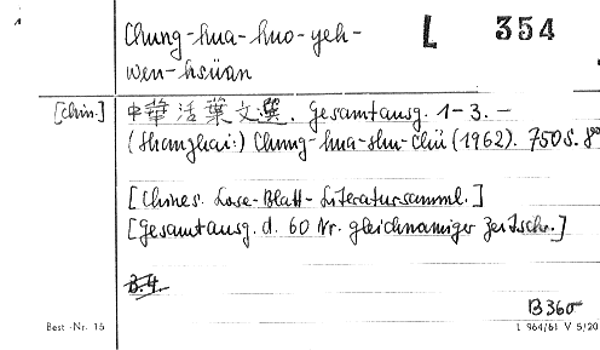 Chung-hua-huo-yeh-
wen-hsüan
L 354
[chin.]
中華活葉文選. Gesamtausg. 1-3. —
(Shanghai:) Chung-hua-shu-chü (1962). 750 S. 8°
[Chines. Lose-Blatt-Literatursamml.]
[Gesamtausg. d. 60 Nr. gleichnamiger Zeitschr.]
B.4.
B 360
Best.-Nr. 15
L 964/61 V 5/20